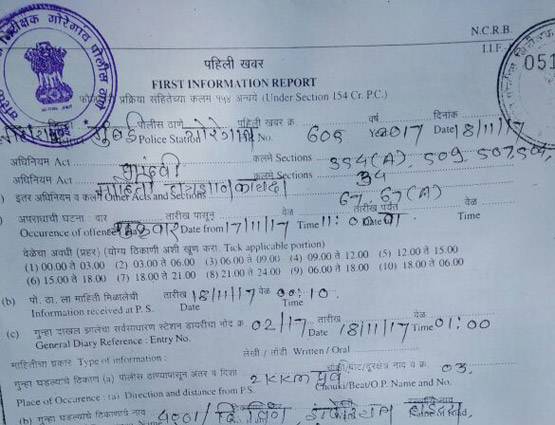 N.C.R.B.
I.I.F.
051
पहिली खबर
FIRST INFORMATION REPORT
प्रक्रिया संहितेच्या कलम १५४ अन्वये (Under Section 154 Cr. P.C.)
मुंबई पोलीस ठाणे गोरेगाव पहिली खबर क्र. वर्ष दिनांक
Police Station No. 605 Year 2017 Date 18/11/17
अधिनियम Act भादंवी कलमे Sections 354(A), 509, 507, 504,
अधिनियम Act कलमे Sections 34
इतर अधिनियम व कलमे Other Acts and Sections 67, 67(A)
अपराधाची घटना : वार तारीख पासून वेळ तारीख पर्यंत वेळ
Occurence of offence शुक्रवार Date from 17/11/17 Time 11:00 Date Time
वेळेचा अवधी (प्रहर) (योग्य ठिकाणी अशी खूण करा. Tick applicable portion)
(1) 00.00 ते 03.00 (2) 03.00 ते 06.00 (3) 06.00 ते 09.00 (4) 09.00 ते 12.00 (5) 12.00 ते 15.00
(6) 15.00 ते 18.00 (7) 18.00 ते 21.00 (8) 21.00 ते 24.00 (9) 06.00 ते 18.00 (10) 18.00 ते 06.00
(b) पो. ठा. ला माहिती मिळालेची तारीख 18/11/17 वेळ 00:10.
Information received at P. S. Date Time
(c) गुन्हा दाखल झालेचा सर्वसाधारण स्टेशन डायरीचा नोंद क्र. 02/17 तारीख 18/11/17 वेळ 01:00
General Diary Reference : Entry No. Date Time
माहितीचा प्रकार Type of information : लेखी / तोंडी Written / Oral
गुन्हा घडल्याचे ठिकाण (a) पोलीस ठाण्यापासून अंतर व दिशा 2 KKM पूर्व चौकी/बीट/दूरक्षेत्र नाव व क्र. 03.
Place of Occurance : (a) Direction and distance from P.S. Chouki/Beat/O.P. Name and No.
(b) गुन्हा घडल्याचे ठिकाणाचे नाव